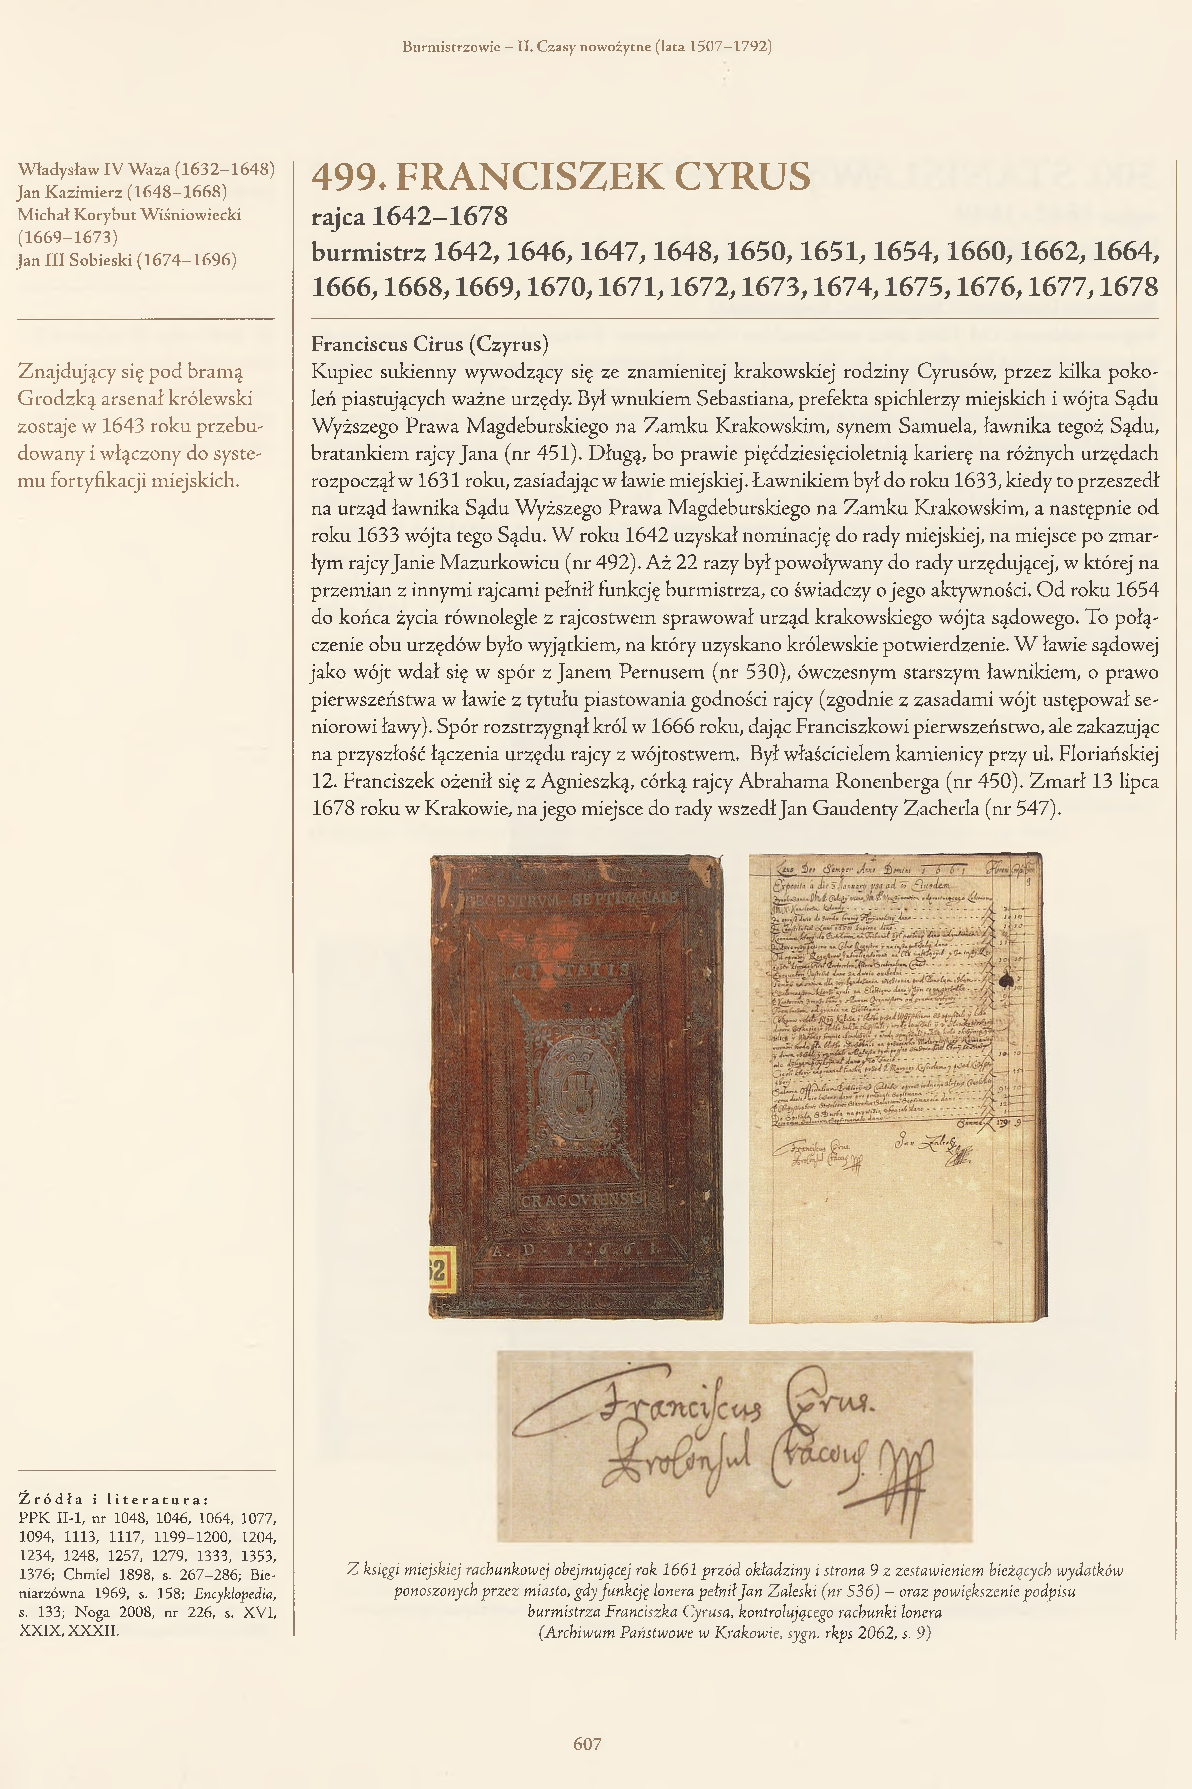 Burmistrzowie – II. Czasy nowożytne (lata 1507–1792)
Władysław IV Waza (1632–1648)
Jan Kazimierz (1648–1668)
Michał Korybut Wiśniowiecki
(1669–1673)
Jan III Sobieski (1674–1696)
Znajdujący się pod bramą
Grodzką arsenał królewski
zostaje w 1643 roku przebu-
dowany i włączony do syste-
mu fortyfikacji miejskich.
Źródła i literatura:
PPK II-1, nr 1048, 1046, 1064, 1077,
1094, 1113, 1117, 1199–1200, 1204,
1234, 1248, 1257, 1279, 1333, 1353,
1376; Chmiel 1898, s. 267–286; Bie-
niarzówna 1969, s. 158; Encyklopedia,
s. 133; Noga 2008, nr 226, s. XVI,
XXIX, XXXII.
499. FRANCISZEK CYRUS
rajca 1642–1678
burmistrz 1642, 1646, 1647, 1648, 1650, 1651, 1654, 1660, 1662, 1664,
1666, 1668, 1669, 1670, 1671, 1672, 1673, 1674, 1675, 1676, 1677, 1678
Franciscus Cirus (Czyrus)
Kupiec sukienny wywodzący się ze znamienitej krakowskiej rodziny Cyrusów, przez kilka poko-
leń piastujących ważne urzędy. Był wnukiem Sebastiana, prefekta spichlerzy miejskich i wójta Sądu
Wyższego Prawa Magdeburskiego na Zamku Krakowskim, synem Samuela, ławnika tegoż Sądu,
bratankiem rajcy Jana (nr 451). Długą, bo prawie pięćdziesięcioletnią karierę na różnych urzędach
rozpoczął w 1631 roku, zasiadając w ławie miejskiej. Ławnikiem był do roku 1633, kiedy to przeszedł
na urząd ławnika Sądu Wyższego Prawa Magdeburskiego na Zamku Krakowskim, a następnie od
roku 1633 wójta tego Sądu. W roku 1642 uzyskał nominację do rady miejskiej, na miejsce po zmar-
łym rajcy Janie Mazurkowicu (nr 492). Aż 22 razy był powoływany do rady urzędującej, w której na
przemian z innymi rajcami pełnił funkcję burmistrza, co świadczy o jego aktywności. Od roku 1654
do końca życia równolegle z rajcostwem sprawował urząd krakowskiego wójta sądowego. To połą-
czenie obu urzędów było wyjątkiem, na który uzyskano królewskie potwierdzenie. W ławie sądowej
jako wójt wdał się w spór z Janem Pernusem (nr 530), ówczesnym starszym ławnikiem, o prawo
pierwszeństwa w ławie z tytułu piastowania godności rajcy (zgodnie z zasadami wójt ustępował se-
niorowi ławy). Spór rozstrzygnął król w 1666 roku, dając Franciszkowi pierwszeństwo, ale zakazując
na przyszłość łączenia urzędu rajcy z wójtostwem. Był właścicielem kamienicy przy ul. Floriańskiej
12. Franciszek ożenił się z Agnieszką, córką rajcy Abrahama Ronenberga (nr 450). Zmarł 13 lipca
1678 roku w Krakowie, na jego miejsce do rady wszedł Jan Gaudenty Zacherla (nr 547).
REGESTRVM SEPTIMANALE
CIVITATIS
CRACOVIENSIS
A. D. 1661.
62
Laus Deo Semper Anno Domini 1661
Summa 179 9
Franciscus Cyrus
Jan Zaleski
ProConsul Cracou
Franciscus Cyrus.
ProConsul Cracou
Z księgi miejskiej rachunkowej obejmującej rok 1661 przód okładziny i strona 9 z zestawieniem bieżących wydatków
ponoszonych przez miasto, gdy funkcję lonera pełnił Jan Zaleski (nr 536) – oraz powiększenie podpisu
burmistrza Franciszka Cyrusa, kontrolującego rachunki lonera
(Archiwum Państwowe w Krakowie, sygn. rkps 2062, s. 9)
607